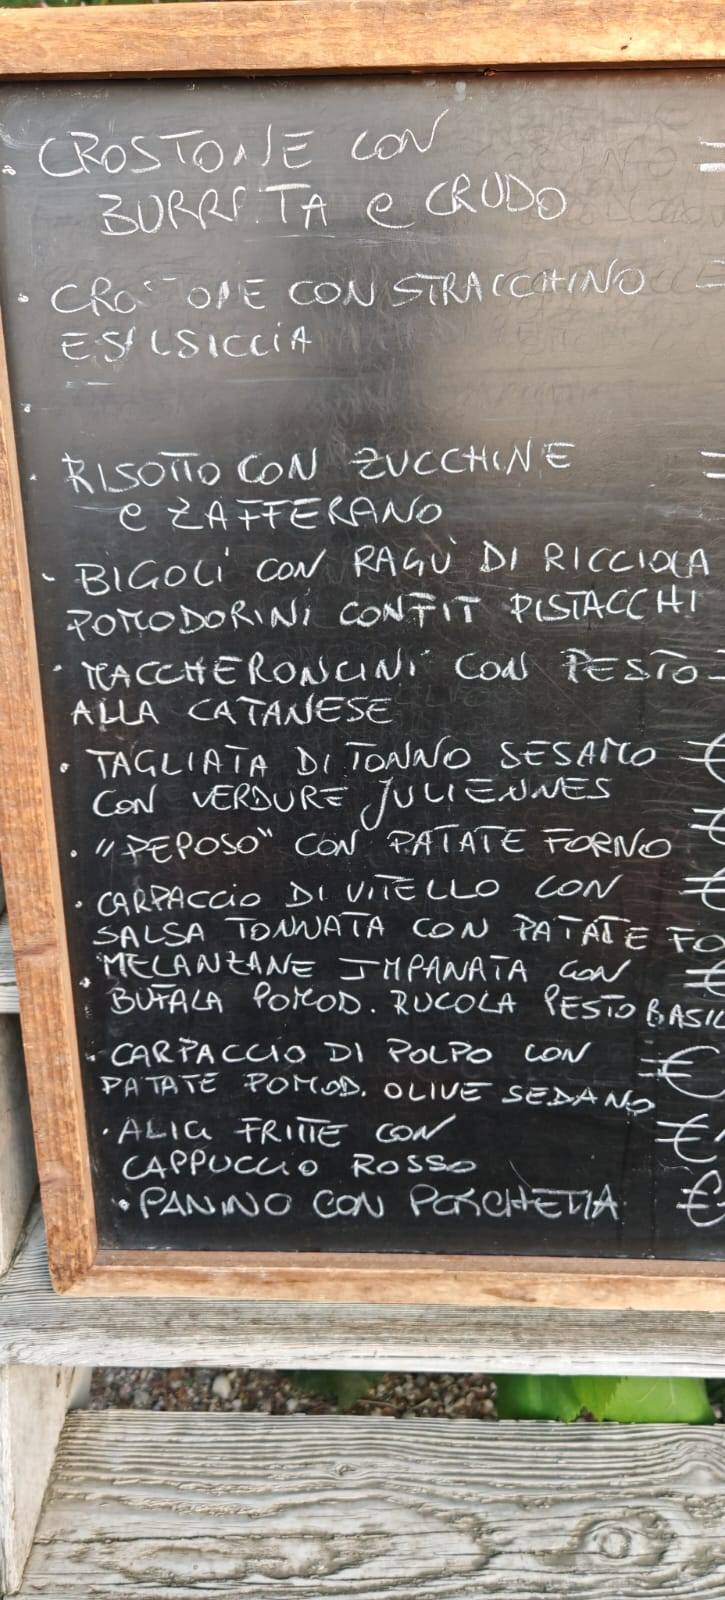 CROSTONE CON
BURRATA e CRUDO
CROSTONE CON STRACCHINO
E SALSICCIA
RISOTTO CON ZUCCHINE
e ZAFFERANO
BIGOLI CON RAGÙ DI RICCIOLA
POMODORINI CONFIT PISTACCHI
MACCHERONCINI CON PESTO
ALLA CATANESE
TAGLIATA DI TONNO SESAMO €
CON VERDURE JULIENNES
"PEPOSO" CON PATATE FORNO €
CARPACCIO DI VITELLO CON €
SALSA TONNATA CON PATATE FO
MELANZANE IMPANATA CON €
BUFALA POMOD. RUCOLA PESTO BASIL
CARPACCIO DI POLPO CON €
PATATE POMOD. OLIVE SEDANO
ALICI FRITTE CON €
CAPPUCCIO ROSSO
PANINO CON PORCHETTA €